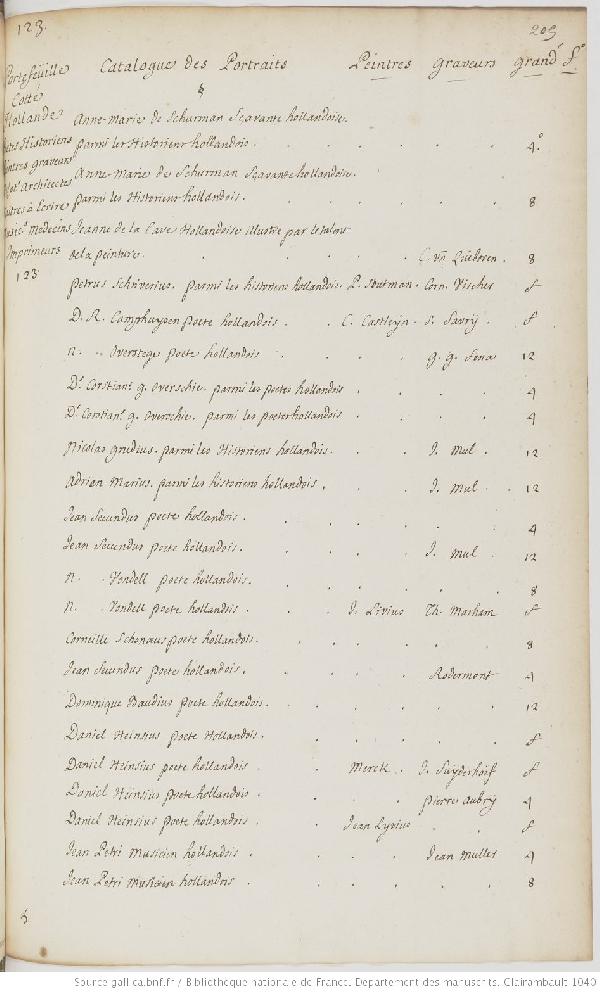 123. 205
Portefeuille Catalogue des Portraits Peintres graveurs grandr fo
Cotté
Hollande
Anne-Marie de Schurman Sçavante hollandoise.
parmi les Historiens hollandois. 4.o
Anne-Marie de Schurman Sçavante hollandoise.
parmi les Historiens hollandois. 8
Historiens
Peintres graveurs
Architectes
à Ecrire
Medecins
Imprimeurs
123
Jeanne de la Cave Hollandoise illustre par le talent
de la peinture. 8
Petrus Schriverius. parmi les historiens hollandois. P. Soutman. Corn. Vischer f
D. R. Camphuysen poete hollandois. C. Casteleyn. S. Savrij. f
n. Overstege poete hollandois 12
Dr. Corstiant g. overschie. parmi les poetes hollandois 4
Dr. Corstiant g. overschie. parmi les poetes hollandois 4
Nicolas grudius. parmi les Historiens hollandois. J. Mul. 12
Adrian Marius. parmi les historiens hollandois. J. Mul. 12
Jean Secundus poete hollandois. 4
Jean Secundus poete hollandois. J. Mul. 12
n. Vondell poete hollandois. 8
n. Vondell poete hollandois. J. Livius Th. Matham f
Corneille Schonaus poete hollandois. 8
Jean Secundus poete hollandois. Rodermont 4
Dominique Baudius poete hollandois. 12
Daniel Heinsius poete Hollandois. f
Daniel Heinsius poete hollandois Merck. J. Suyderhoif f
Daniel Heinsius poete hollandois pierre aubrij 4
Daniel Heinsius poete hollandois Jean Lyvius f
Jean Petri Musicien hollandois. Jean Muller 4
Jean Petri Musicien hollandois. 8
Source gallica.bnf.fr / Bibliothèque nationale de France. Département des manuscrits. Clairambault 1040